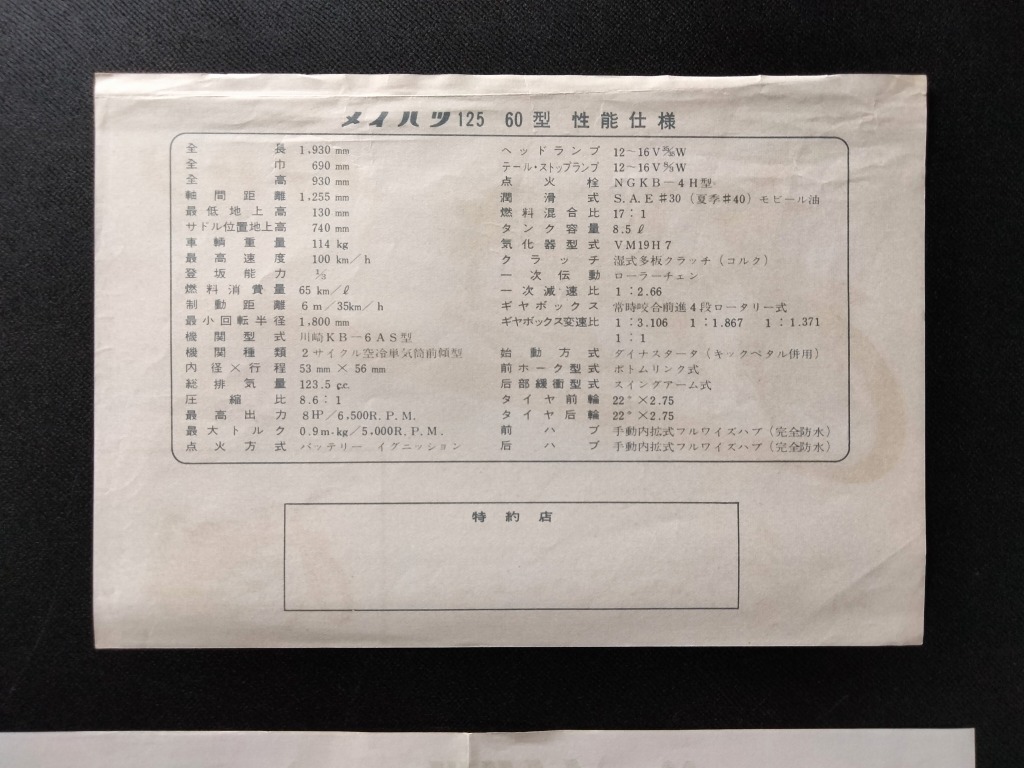 メイハツ 125 60型 性能仕様
全長 1,930 mm
全巾 690 mm
全高 930 mm
軸間距離 1,255 mm
最低地上高 130 mm
サドル位置地上高 740 mm
車輌重量 114 kg
最高速度 100 km/h
登坂能力 ⅓
燃料消費量 65 km/ℓ
制動距離 6 m/35km/h
最小回転半径 1,800 mm
機関型式 川崎KB-6AS型
機関種類 2サイクル空冷単気筒前傾型
内径×行程 53 mm × 56 mm
総排気量 123.5 c.c.
圧縮比 8.6:1
最高出力 8HP/6,500R.P.M.
最大トルク 0.9m.kg/5,000R.P.M.
点火方式 バッテリー イグニッション
ヘッドランプ 12~16V W
テール・ストップランプ 12~16V W
点火栓 NGKB-4H型
潤滑式 S.A.E♯30(夏季♯40)モビール油
燃料混合比 17:1
タンク容量 8.5ℓ
気化器型式 VM19H7
クラッチ 湿式多板クラッチ(コルク)
一次伝動 ローラーチェン
一次減速比 1:2.66
ギヤボックス 常時咬合前進4段ロータリー式
ギヤボックス変速比 1:3.106 1:1.867 1:1.371
1:1
始動方式 ダイナスタータ(キックペタル併用)
前ホーク型式 ボトムリンク式
后部緩衝型式 スイングアーム式
タイヤ前輪 22"×2.75
タイヤ后輪 22"×2.75
前ハブ 手動内拡式フルワイズハブ(完全防水)
后ハブ 手動内拡式フルワイズハブ(完全防水)
特約店